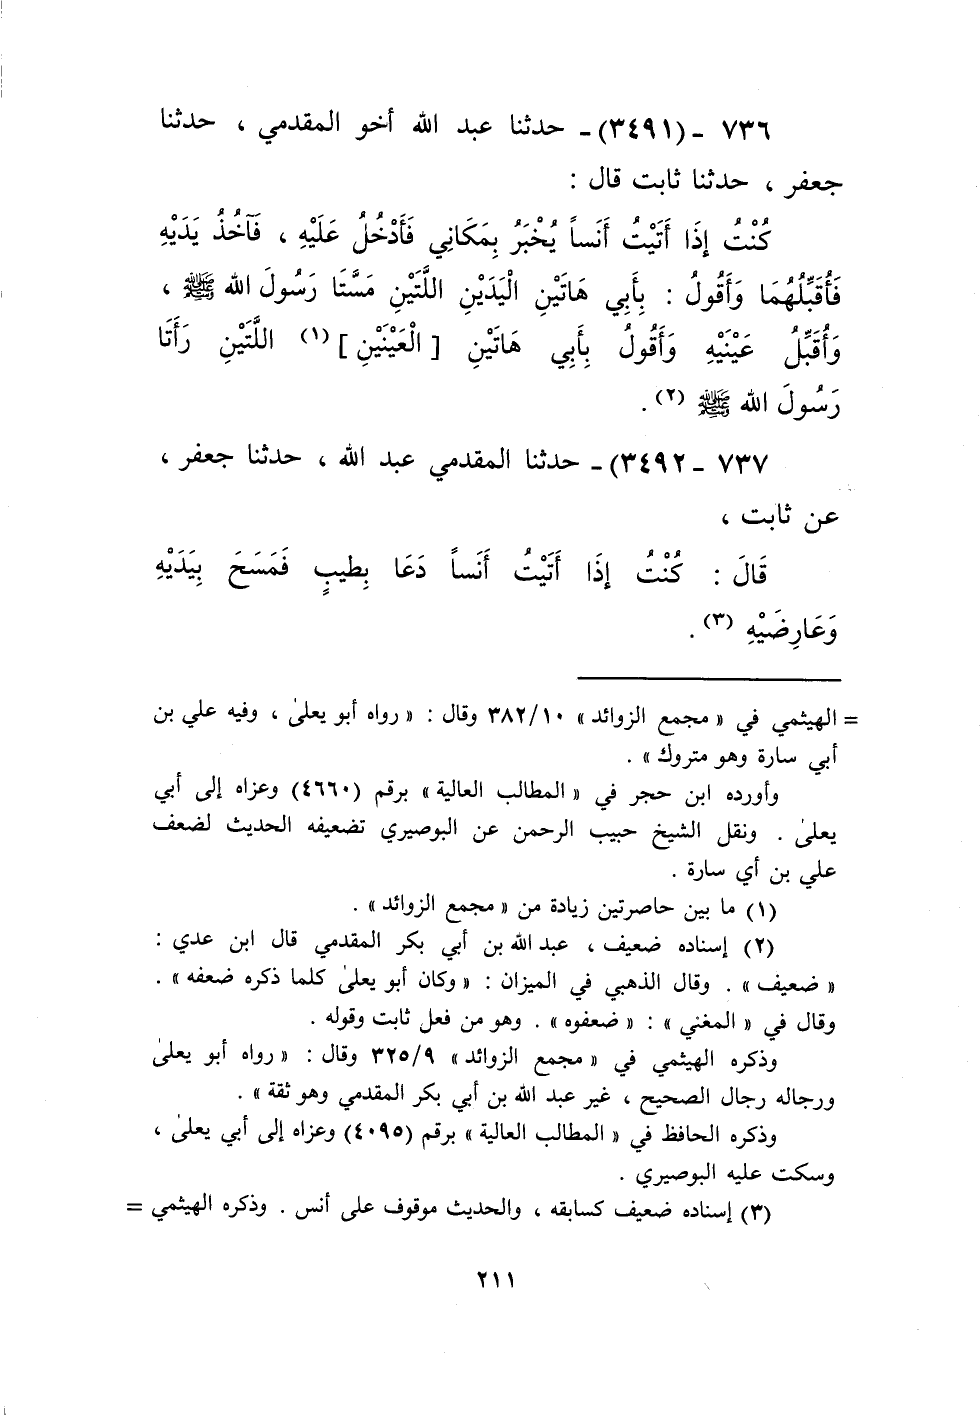 ٧٣٦ - (٣٤٩١) - حدثنا عبد الله أخو المقدمي ، حدثنا
جعفر ، حدثنا ثابت قال :
كُنْتُ إِذَا أَتَيْتُ أَنَساً يُخْبَرُ بِمَكَانِي فَأَدْخُلُ عَلَيْهِ ، فَآخُذُ يَدَيْهِ
فَأُقَبِّلُهُمَا وَأَقُولُ : بِأَبِي هَاتَيْنِ الْيَدَيْنِ اللَّتَيْنِ مَسَّتَا رَسُولَ الله ﷺ ،
وَأُقَبِّلُ عَيْنَيْهِ وَأَقُولُ بِأَبِي هَاتَيْنِ [ الْعَيْنَيْنِ ] (١) اللَّتَيْنِ رَأَتَا
رَسُولَ الله ﷺ (٢) .
٧٣٧ - ٣٤٩٢) - حدثنا المقدمي عبد الله ، حدثنا جعفر ،
عن ثابت ،
قَالَ : كُنْتُ إِذَا أَتَيْتُ أَنَساً دَعَا بِطِيبٍ فَمَسَحَ بِيَدَيْهِ
وَعَارِضَيْهِ (٣) .
= الهيثمي في « مجمع الزوائد » ٣٨٢/١٠ وقال : « رواه أبو يعلىٰ ، وفيه علي بن
أبي سارة وهو متروك » .
وأورده ابن حجر في « المطالب العالية » برقم (٤٦٦٠) وعزاه إلى أبي
يعلىٰ . ونقل الشيخ حبيب الرحمن عن البوصيري تضعيفه الحديث لضعف
علي بن أي سارة .
(١) ما بين حاصرتين زيادة من « مجمع الزوائد » .
(٢) إسناده ضعيف ، عبد الله بن أبي بكر المقدمي قال ابن عدي :
« ضعيف » . وقال الذهبي في الميزان : « وكان أبو يعلىٰ كلما ذكره ضعفه » .
وقال في « المغني » : « ضعفوه » . وهو من فعل ثابت وقوله .
وذكره الهيثمي في « مجمع الزوائد » ٣٢٥/٩ وقال : « رواه أبو يعلىٰ
ورجاله رجال الصحيح ، غير عبد الله بن أبي بكر المقدمي وهو ثقة » .
وذكره الحافظ في « المطالب العالية » برقم (٤٠٩٥) وعزاه إلى أبي يعلىٰ ،
وسكت عليه البوصيري .
(٣) إسناده ضعيف كسابقه ، والحديث موقوف على أنس . وذكره الهيثمي =
٢١١